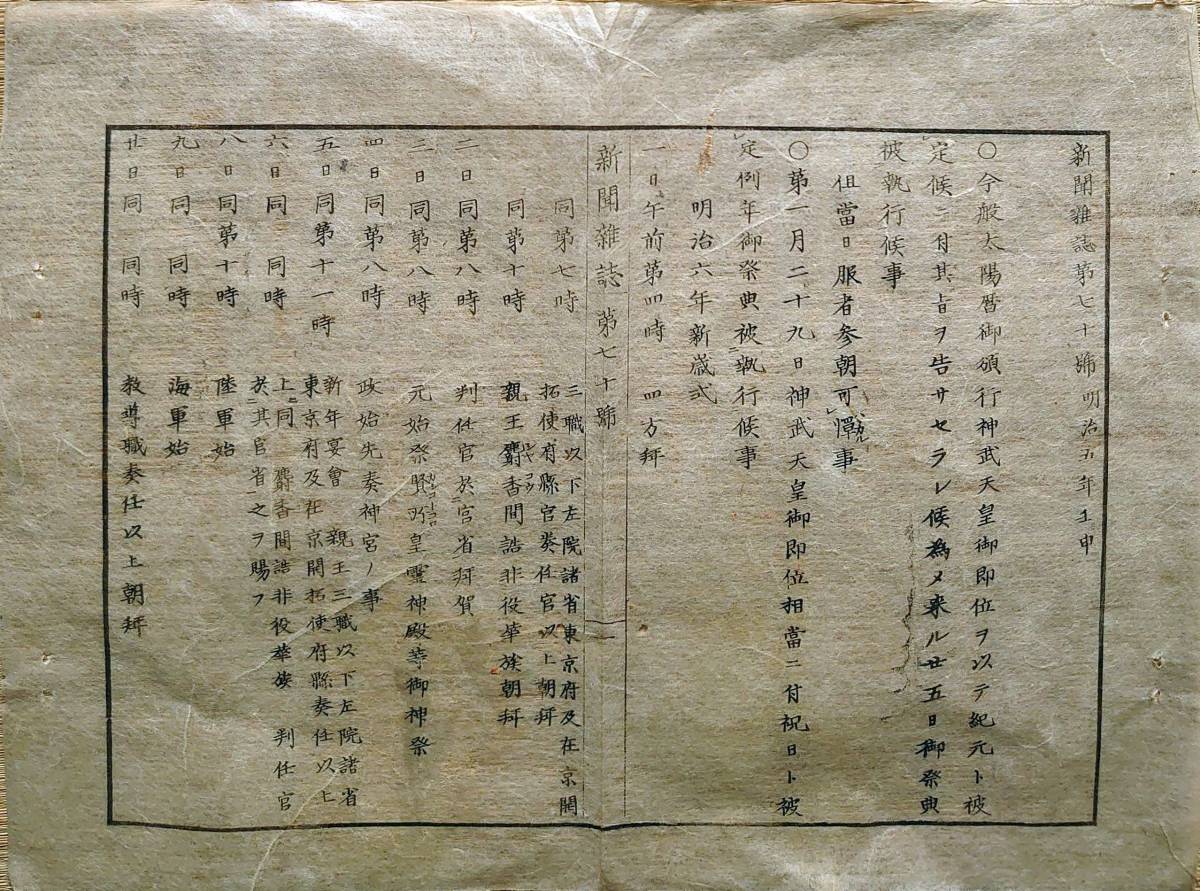 新聞雜誌第七十號明治五年壬申
〇今般太陽曆御頒行神武天皇御即位ヲ以テ紀元ト被
定候ニ付其旨ヲ告サセラレ候為メ来ル廿五日御祭典
被執行候事
但當日服者参朝可憚事
〇第一月二十九日神武天皇御即位相當ニ付祝日ト被
定例年御祭典被執行候事
明治六年新歳式
一日午前第四時 四方拜
新聞雜誌 第七十號 一
同第七時 三職以下左院諸省東京府及在京開
拓使府縣官奏任官以上朝拜
同第十時 親王麝香間詰非役華族朝拜
二日同第八時 判任官於官省拜賀
三日同第八時 元始祭賢所皇靈神殿等御神祭
四日同第八時 政始先奏神宮ノ事
五日同第十一時 新年宴會 親王三職以下左院諸省
東京府及在京開拓使府縣奏任以上
六日同 同時 上ニ同 麝香間詰非役華族 判任官
於其官省之ヲ賜フ
八日同第十時 陸軍始
九日同 同時 海軍始
廿日同 同時 教導職奏任以上朝拜